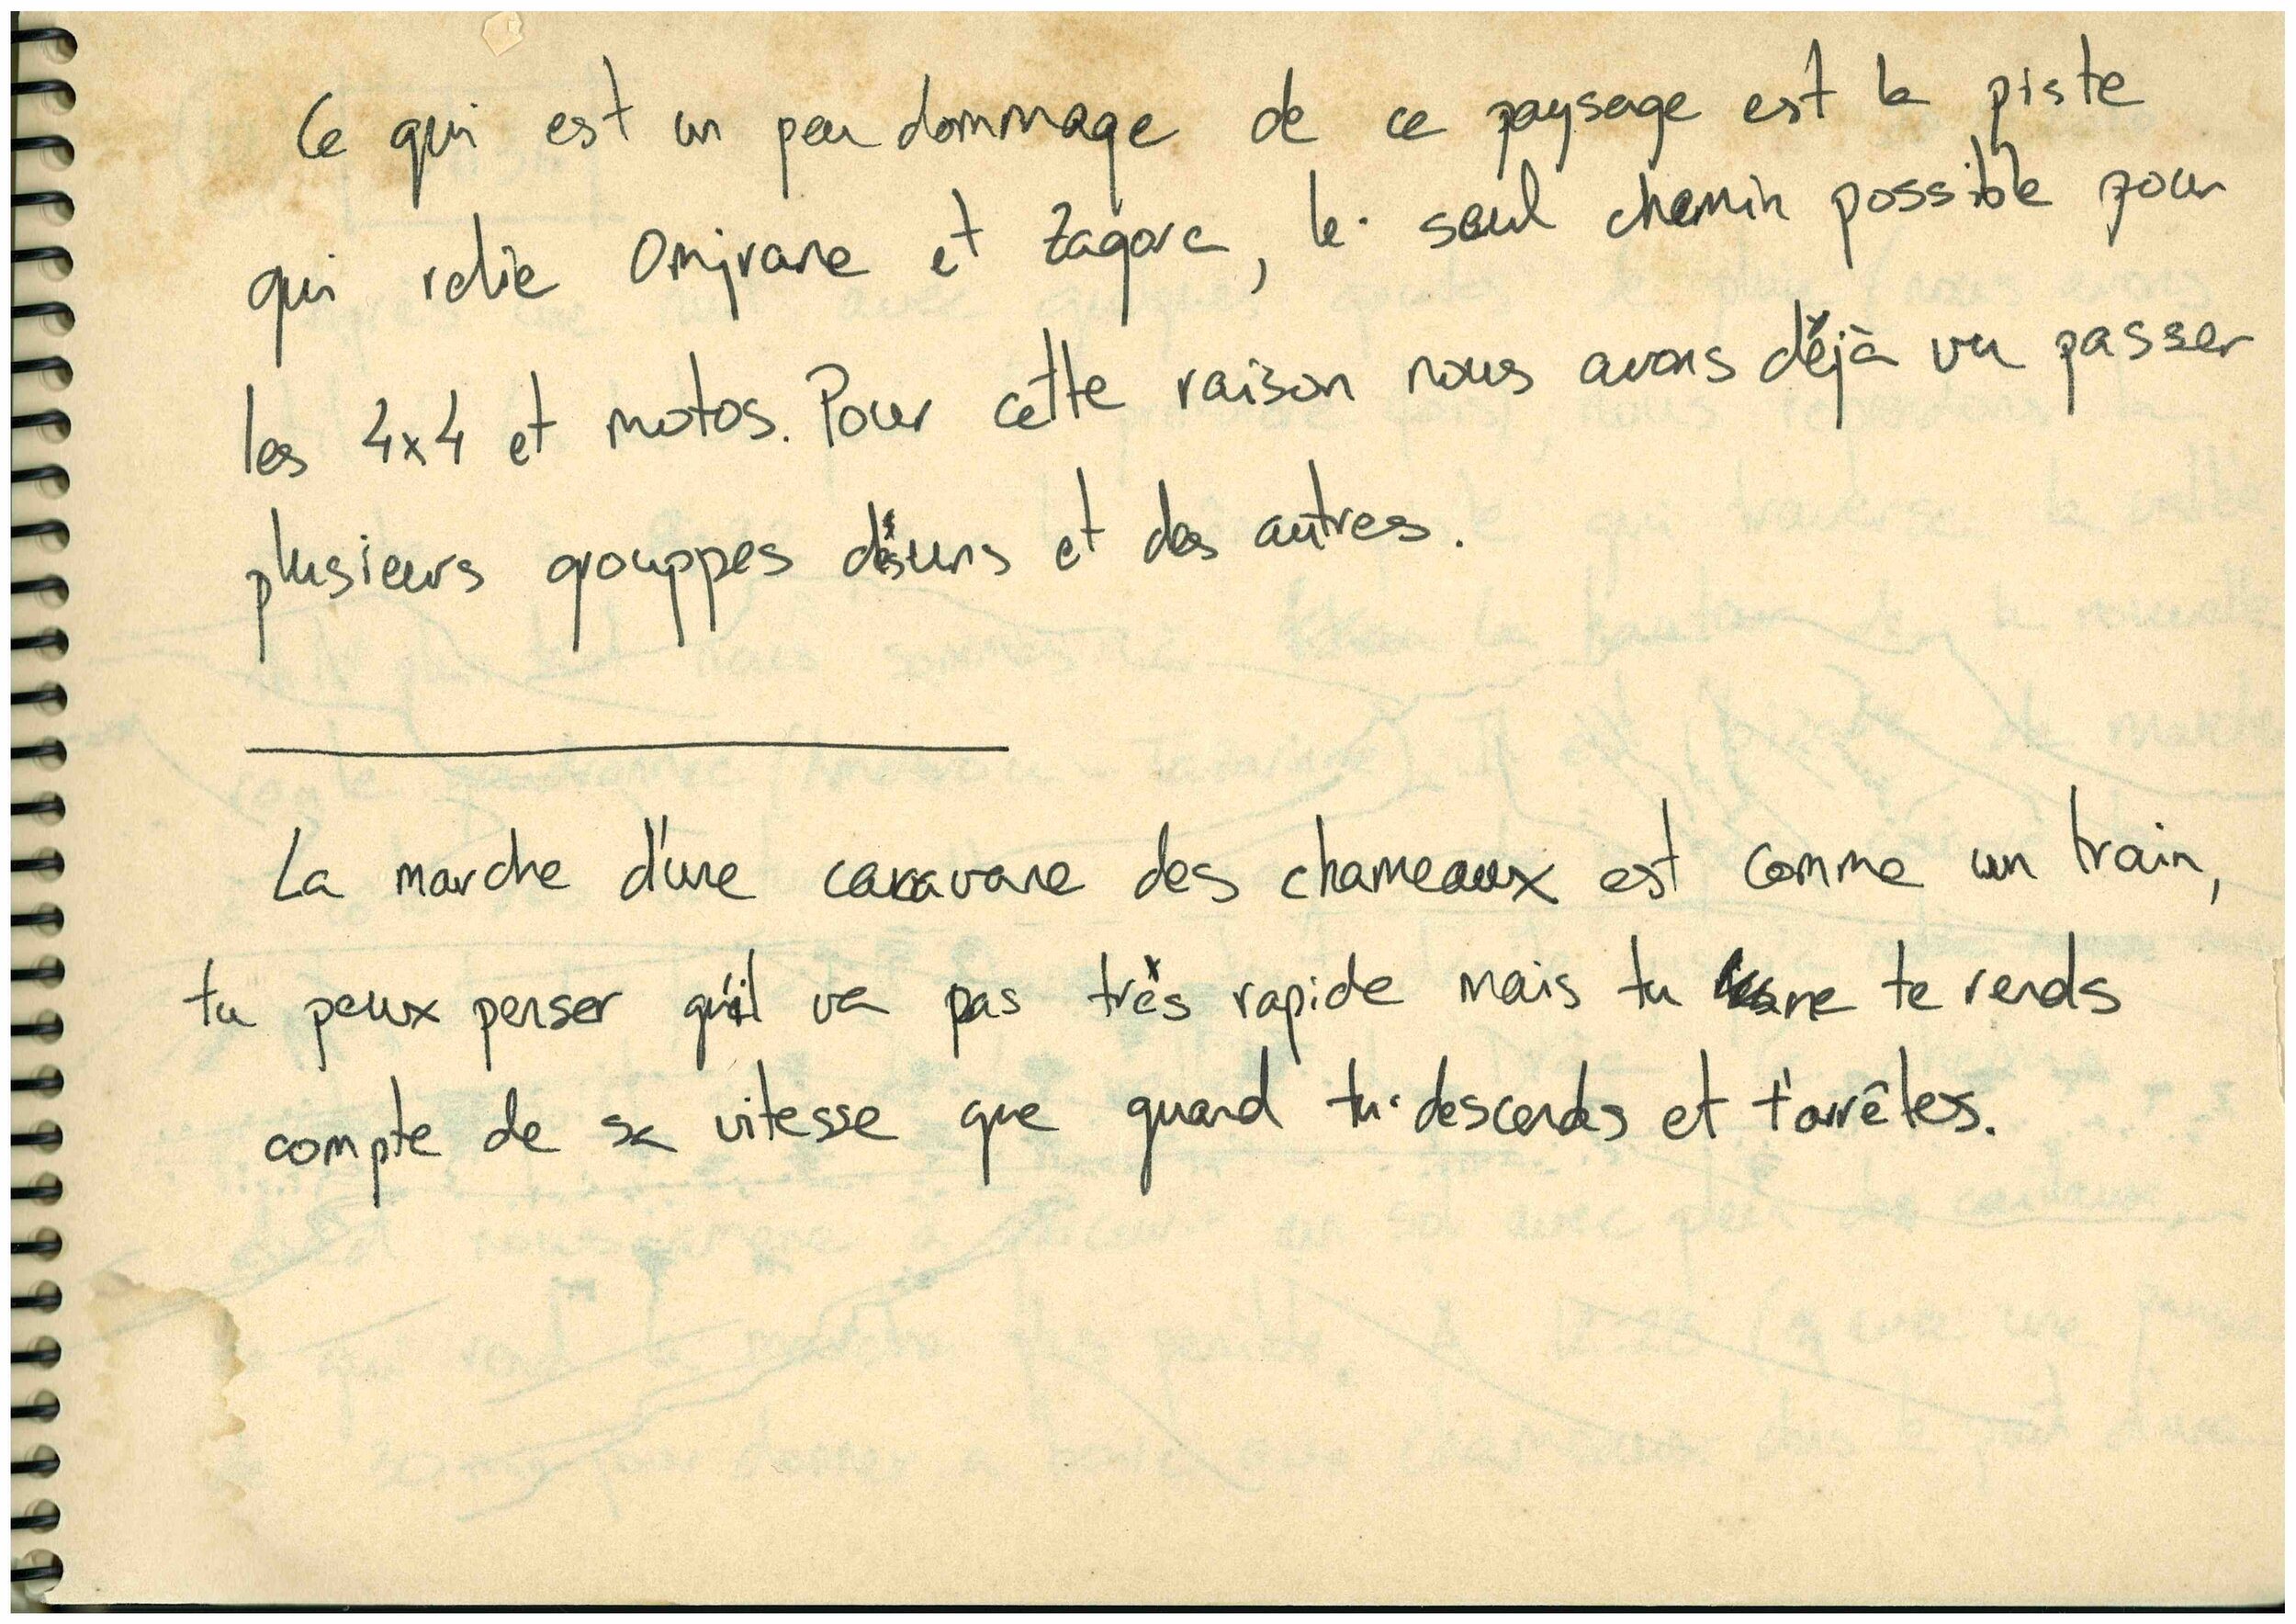 Ce qui est un peu dommage de ce paysage est la piste
qui relie Omjrane et Zagora, le seul chemin possible pour
les 4x4 et motos. Pour cette raison nous avons déjà vu passer
plusieurs grouppes des uns et des autres.
La marche d'une caravane des chameaux est comme un train,
tu peux penser qu'il va pas très rapide mais tu ne te rends
compte de sa vitesse que quand tu descends et t'arrêtes.